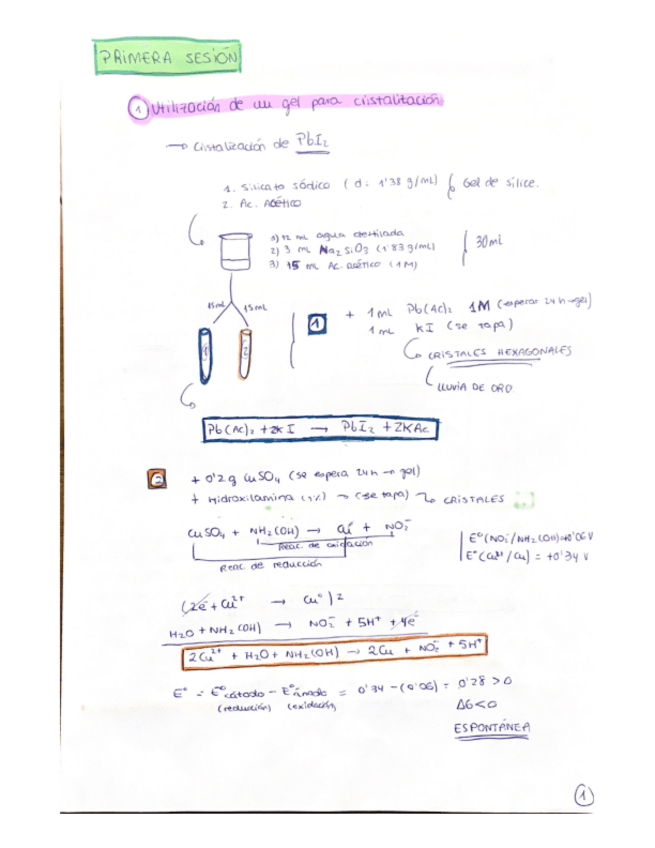 PRIMERA SESIÓN
1 Utilización de un gel para cristalización
→ Cristalización de PbI₂
1. Silicato sódico (d: 1'38 g/mL) } Gel de sílice.
2. Ac. Acético
1) 12 mL agua destilada
2) 3 mL Na₂SiO₃ (1'83 g/mL)
3) 15 mL Ac. acético (1M)
30 ml
15mL 15mL
1 2
1 + 1 mL Pb(Ac)₂ 1M (esperar 24 h → gel)
1 mL KI (se tapa)
CRISTALES HEXAGONALES
LLUVIA DE ORO.
Pb(Ac)₂ + 2KI → PbI₂ + 2KAc
2 + 0'2 g CuSO₄ (se espera 24h → gel)
+ Hidroxilamina (1%) → (se tapa) CRISTALES
CuSO₄ + NH₂(OH) → Cu + NO₃⁻
Reac. de oxidación
Reac. de reducción
E°(NO₃⁻/NH₂(OH)) = +0'06 V
E°(Cu²⁺/Cu) = +0'34 V
(2e⁻ + Cu²⁺ → Cu°) 2
H₂O + NH₂(OH) → NO₂⁻ + 5H⁺ + 4e⁻
2Cu²⁺ + H₂O + NH₂(OH) → 2Cu + NO₂⁻ + 5H⁺
E° = E°cátodo - E°ánodo = 0'34 - (0'06) = 0'28 > 0
(reducción) (oxidación)
ΔG<0
ESPONTÁNEA
1